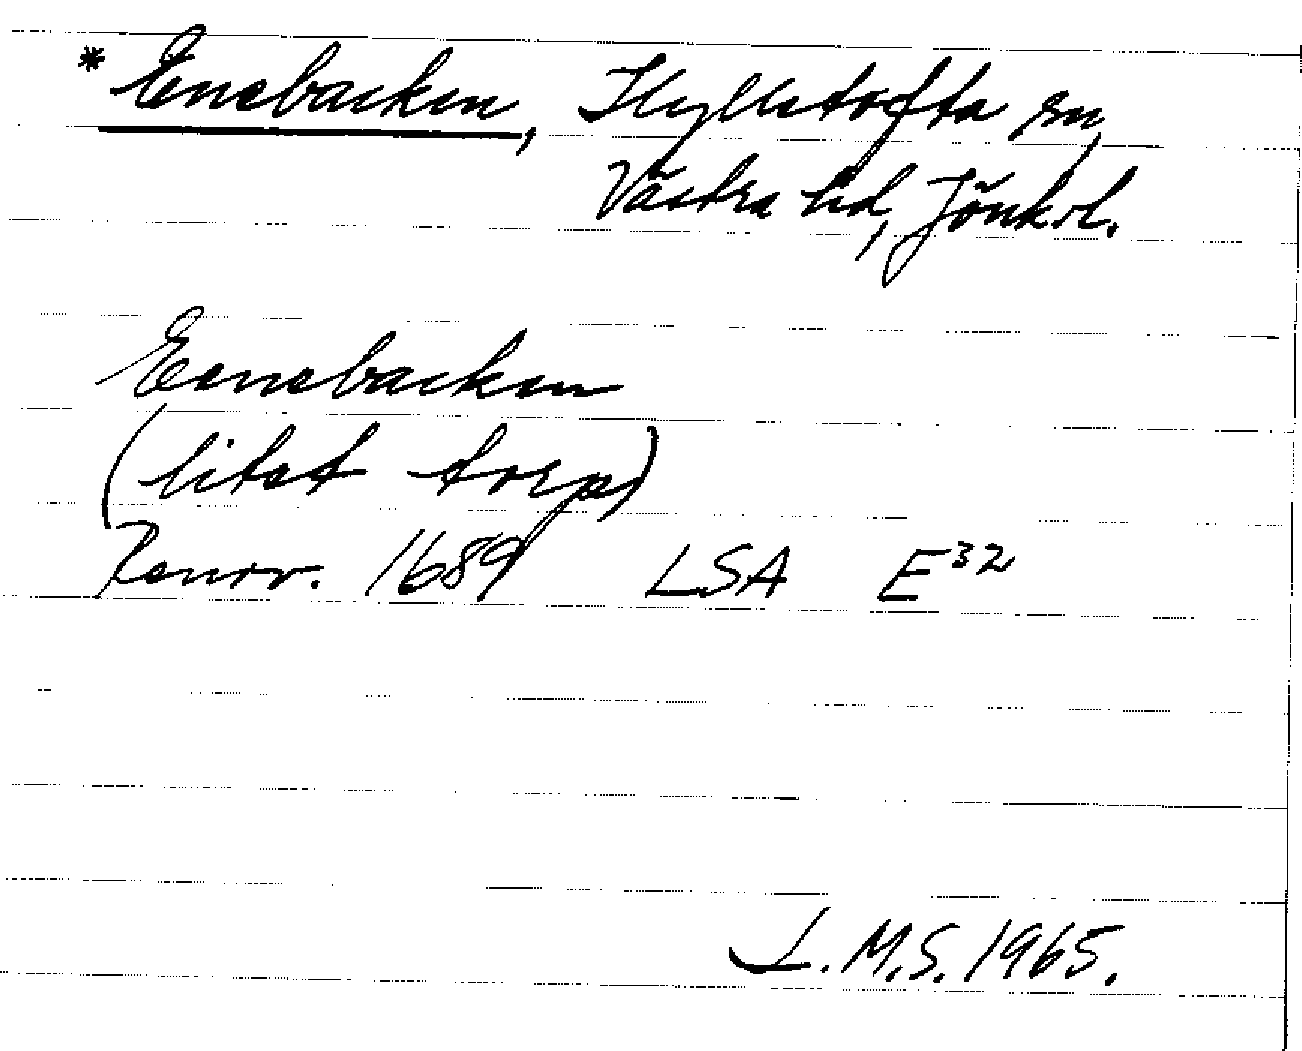 * Enebacken, Hyllstofta sn,
Västra hd, Jönk.l.
Eenebacken
(litet torp)
Renov. 1689 LSA E³²
I.M.S. 1965.